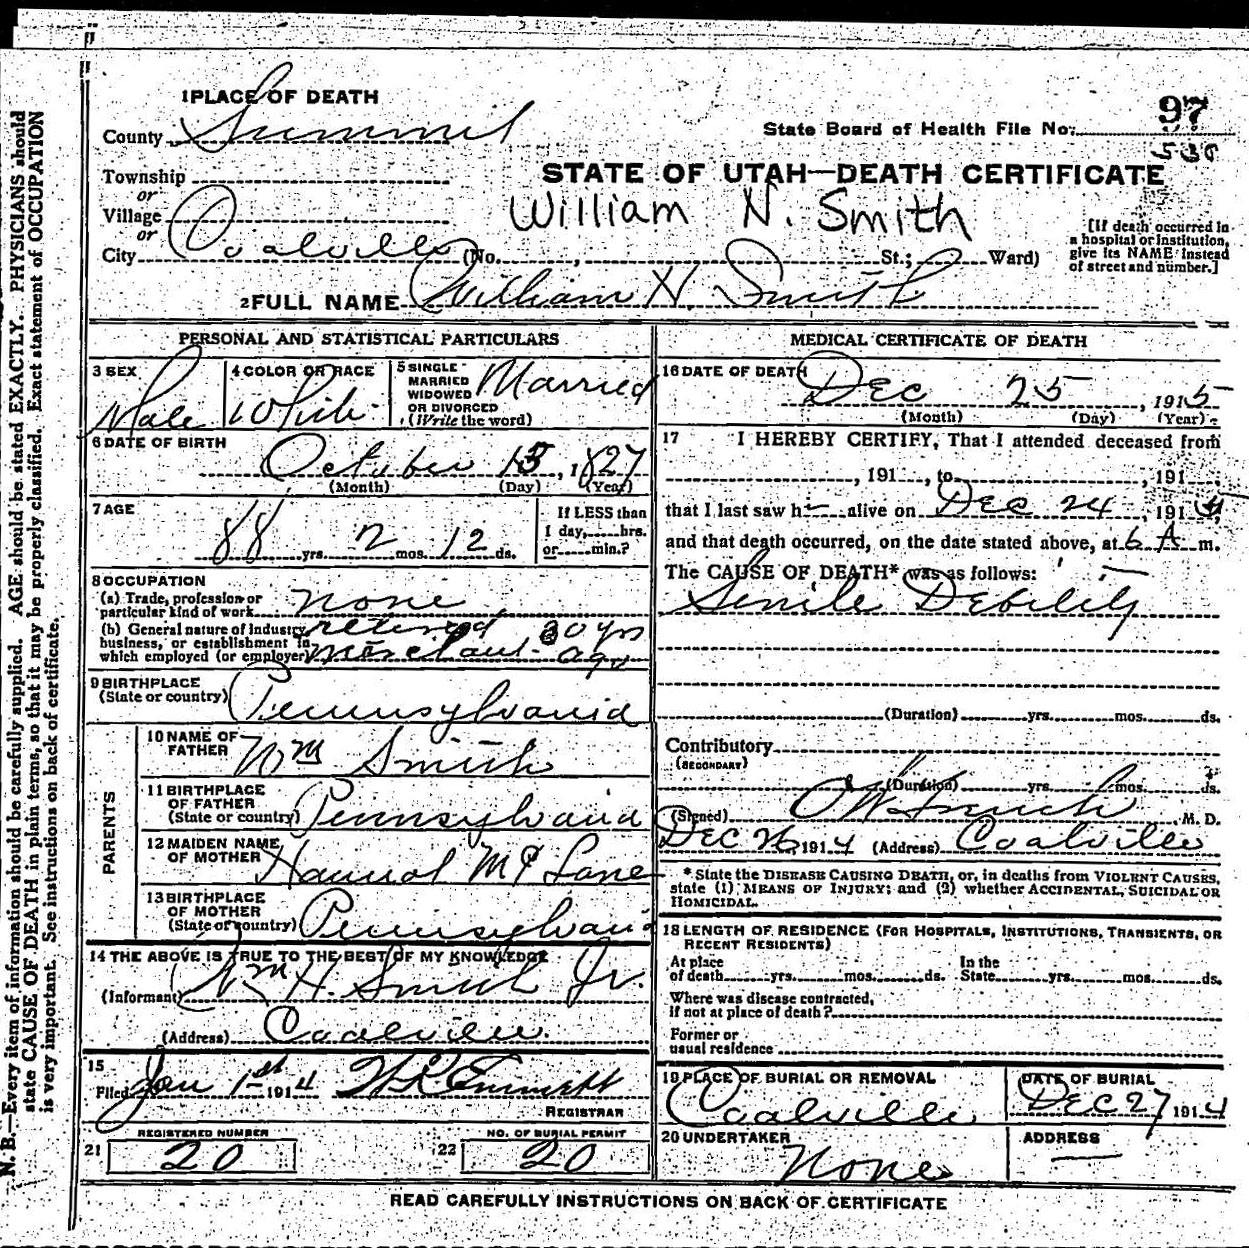 1 PLACE OF DEATH
County Summit
State Board of Health File No. 97
Township
or
Village
or
City Coalville (No. , St.; Ward)
STATE OF UTAH—DEATH CERTIFICATE
William N. Smith
[If death occurred in a hospital or institution, give its NAME instead of street and number.]
2 FULL NAME William H. Smith
PERSONAL AND STATISTICAL PARTICULARS
3 SEX Male
4 COLOR OR RACE White
5 SINGLE MARRIED WIDOWED OR DIVORCED (Write the word) Married
6 DATE OF BIRTH
October 13, 1827
(Month) (Day) (Year)
7 AGE
88 yrs. 2 mos. 12 ds.
If LESS than 1 day, hrs. or min.?
8 OCCUPATION
(a) Trade, profession or particular kind of work none
(b) General nature of industry, business, or establishment in which employed (or employer) retired 30 yrs ago
9 BIRTHPLACE
(State or country) Pennsylvania
PARENTS
10 NAME OF FATHER Wm Smith
11 BIRTHPLACE OF FATHER (State or country) Pennsylvania
12 MAIDEN NAME OF MOTHER Hannah Mc Lane
13 BIRTHPLACE OF MOTHER (State or country) Pennsylvania
14 THE ABOVE IS TRUE TO THE BEST OF MY KNOWLEDGE
(Informant) Wm H. Smith Jr.
(Address) Coalville
15
Filed Jan 1st 1914
REGISTRAR
21 REGISTERED NUMBER 20
22 NO. OF BURIAL PERMIT 20
MEDICAL CERTIFICATE OF DEATH
16 DATE OF DEATH
Dec 25, 1915
(Month) (Day) (Year)
17 I HEREBY CERTIFY, That I attended deceased from
, 191 , to , 191 ,
that I last saw h alive on Dec 24, 1914,
and that death occurred, on the date stated above, at 6 A m.
The CAUSE OF DEATH* was as follows:
Senile Debility
(Duration) yrs. mos. ds.
Contributory
(SECONDARY)
(Duration) yrs. mos. ds.
(Signed) M. D.
Dec 26, 1914 (Address) Coalville
* State the DISEASE CAUSING DEATH, or, in deaths from VIOLENT CAUSES,
state (1) MEANS OF INJURY; and (2) whether ACCIDENTAL, SUICIDAL OR
HOMICIDAL.
18 LENGTH OF RESIDENCE (FOR HOSPITALS, INSTITUTIONS, TRANSIENTS, OR
RECENT RESIDENTS)
At place of death yrs. mos. ds. In the State yrs. mos. ds.
Where was disease contracted,
if not at place of death?
Former or
usual residence
19 PLACE OF BURIAL OR REMOVAL Coalville
DATE OF BURIAL Dec 27 1914
20 UNDERTAKER None
ADDRESS —
READ CAREFULLY INSTRUCTIONS ON BACK OF CERTIFICATE
N. B.—Every item of information should be carefully supplied. AGE should be stated EXACTLY. PHYSICIANS should
state CAUSE OF DEATH in plain terms, so that it may be properly classified. Exact statement of OCCUPATION
is very important. See instructions on back of certificate.